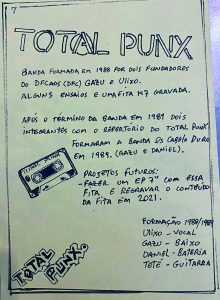 7
TOTAL PUNX
BANDA FORMADA EM 1988 POR DOIS FUNDADORES
DO DFCAOS (DFC) GAZU E ULIXO.
ALGUNS ENSAIOS E UMA FITA K7 GRAVADA.
APÓS O TÉRMINO DA BANDA EM 1989 DOIS
INTEGRANTES COM O REPERTORIO DO TOTAL PUNX
FORMARAM A BANDA OS CABELO DURO
EM 1989. (GAZU E DANIEL).
PROJETOS FUTUROS:
- FAZER UM EP 7" COM ESSA
FITA E REGRAVAR O CONTEUDO
DA FITA EM 2021.
FORMAÇÃO 1988/1989
ULIXO - VOCAL
GAZU - BAIXO
DANIEL - BATERIA
TETÉ - GUITARRA
TOTAL
PUNX.